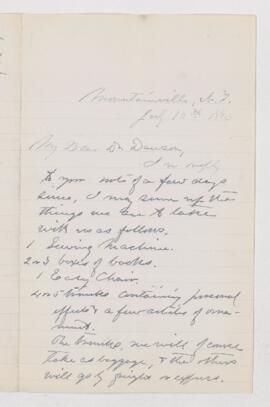 Mountainville, N.Y.
July 10th 1893
My Dear Dr Dawson,
In reply
to your note of a few days
since, I may sum up the
things we have to take
with us as follows.
1 Sewing Machine.
2 or 3 boxes of books.
1 Easy Chair.
4 or 5 trunks containing personal
effects & a few articles of orna-
ment.
The trunks, we will of course
take as baggage, & the others
will go by freight or express.